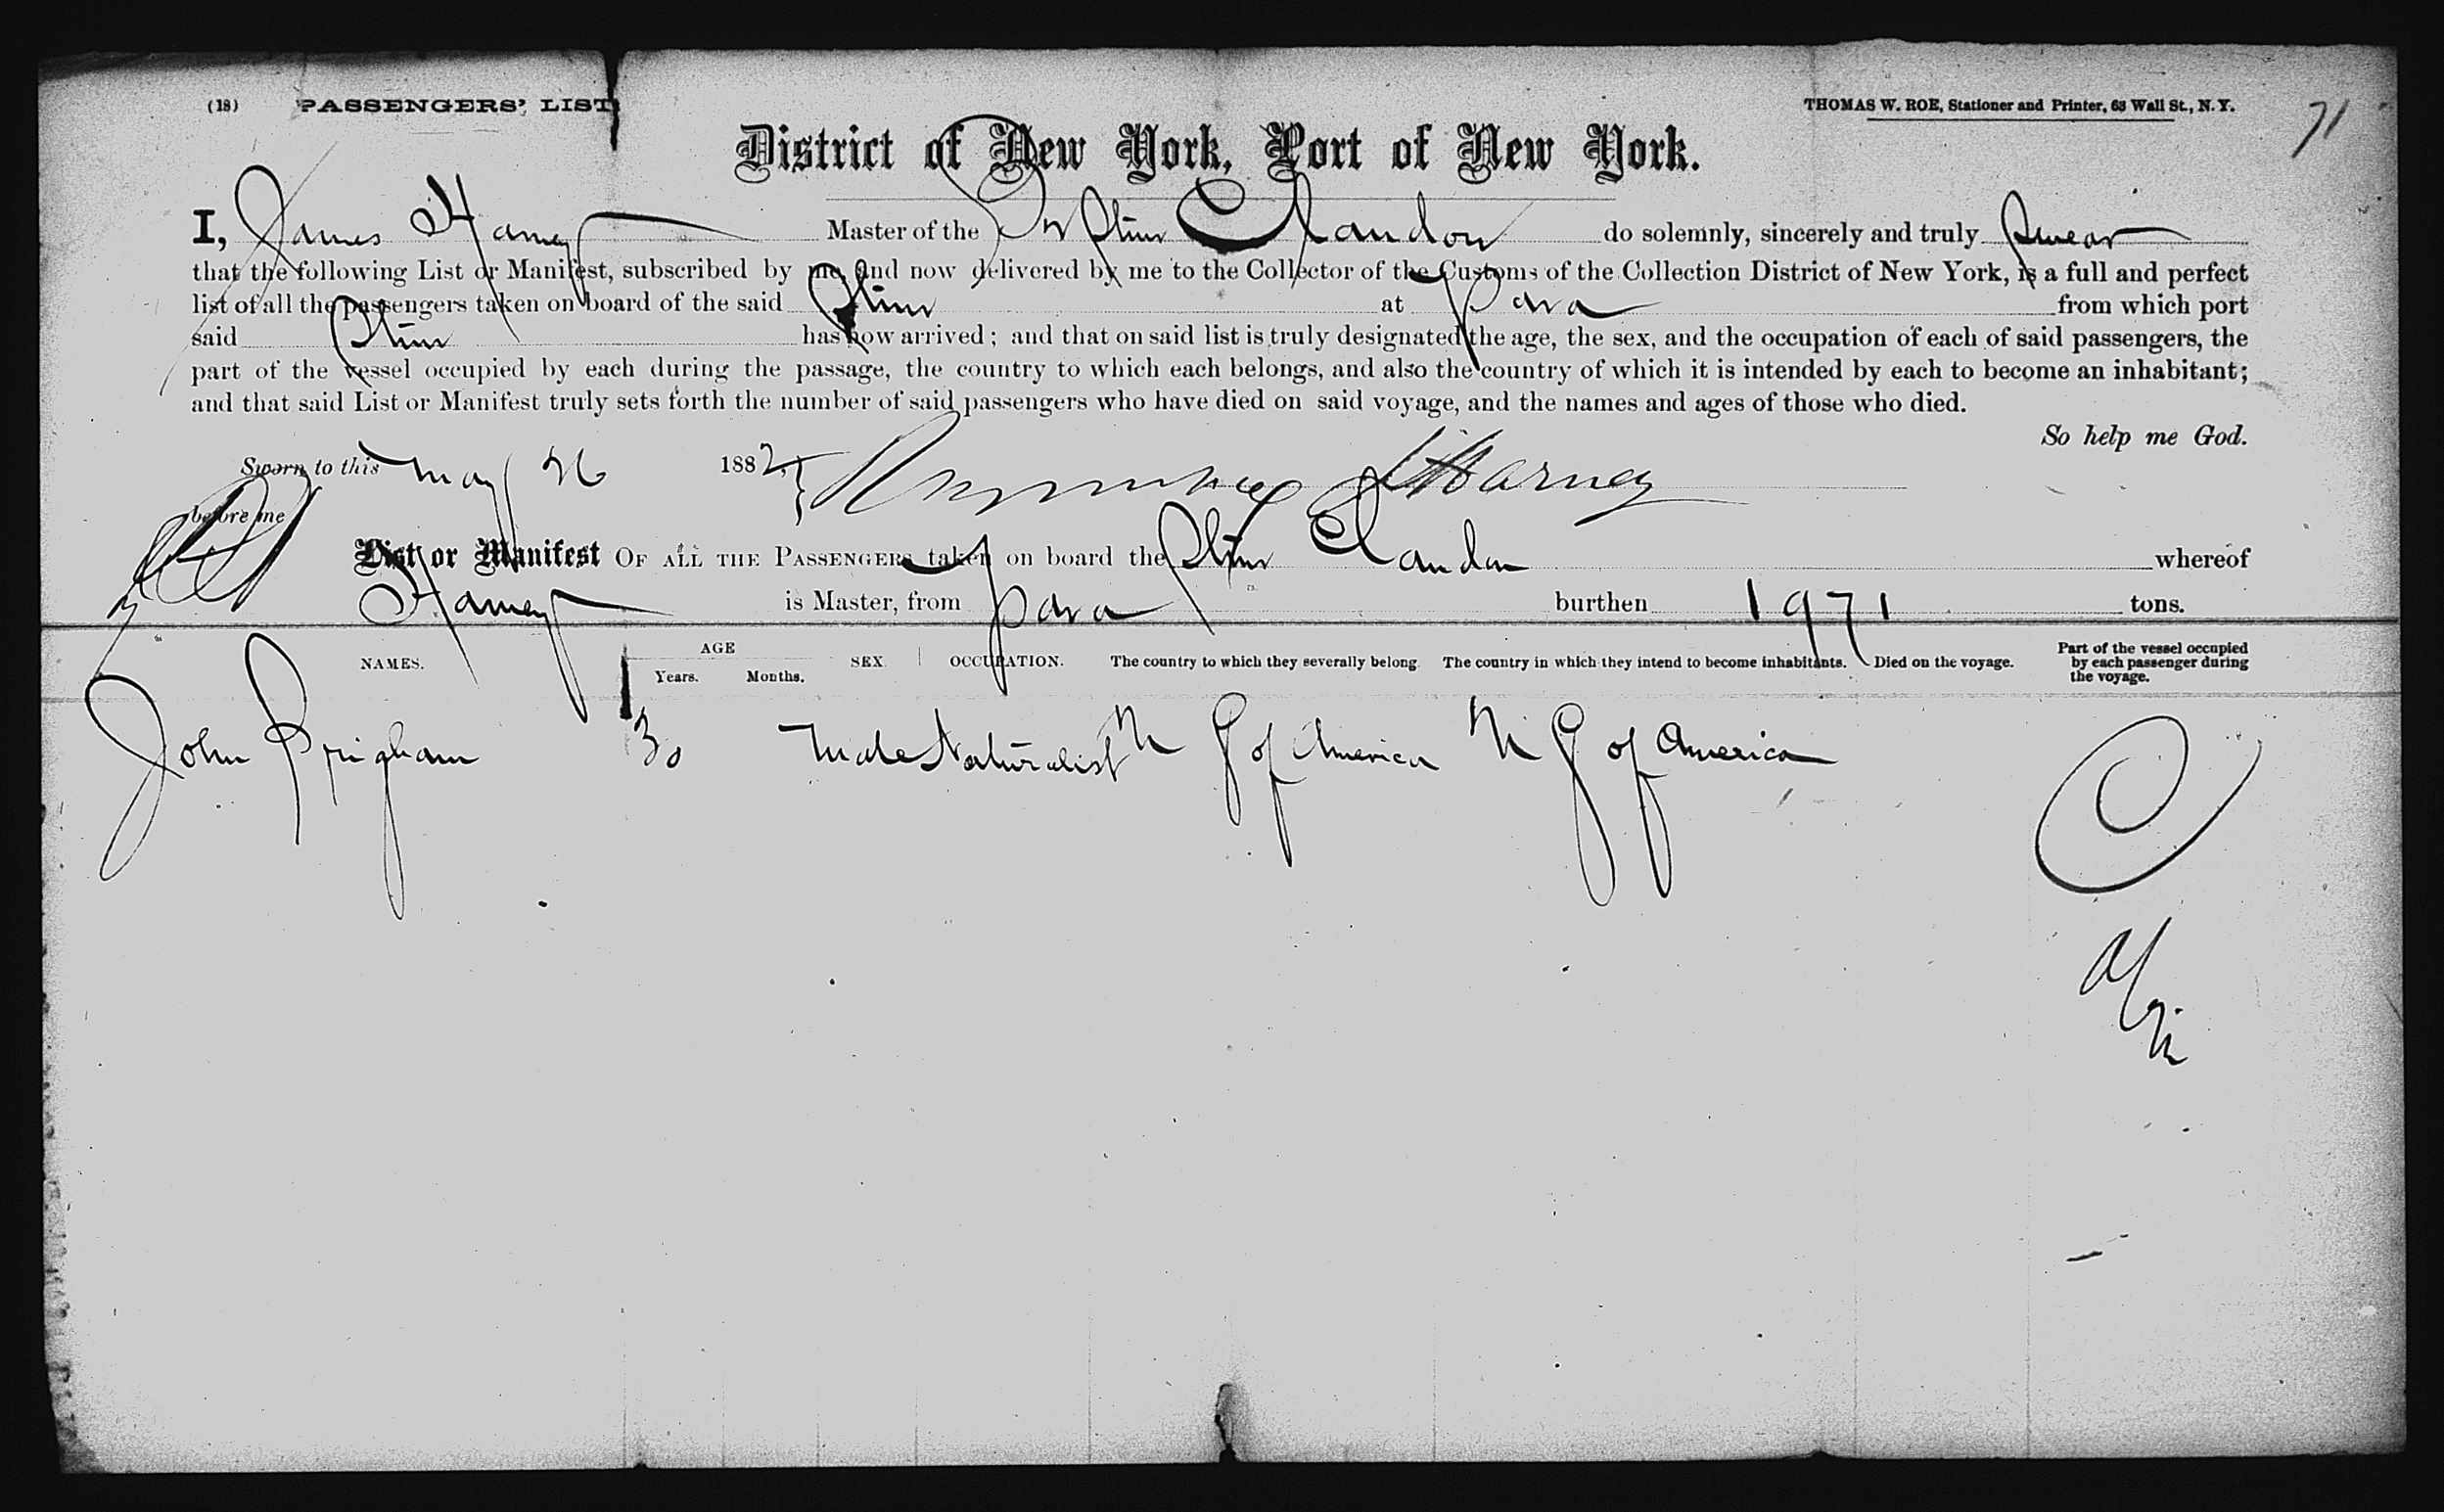 (18) PASSENGERS' LIST
THOMAS W. ROE, Stationer and Printer, 63 Wall St., N.Y.
71
District of New York, Port of New York.
I, James Harney Master of the Br Stmr Clandon do solemnly, sincerely and truly swear
that the following List or Manifest, subscribed by me, and now delivered by me to the Collector of the Customs of the Collection District of New York, is a full and perfect
list of all the passengers taken on board of the said Stmr at Para from which port
said Stmr has now arrived; and that on said list is truly designated the age, the sex, and the occupation of each of said passengers, the
part of the vessel occupied by each during the passage, the country to which each belongs, and also the country of which it is intended by each to become an inhabitant;
and that said List or Manifest truly sets forth the number of said passengers who have died on said voyage, and the names and ages of those who died.
So help me God.
Sworn to this May 26 1882 J Harney
before me
List or Manifest OF ALL THE PASSENGERS taken on board the Stmr Clandon whereof
Harney is Master, from Para burthen 1971 tons.
NAMES. AGE Years. Months. SEX OCCUPATION. The country to which they severally belong. The country in which they intend to become inhabitants. Died on the voyage. Part of the vessel occupied by each passenger during the voyage.
John Brigham 30 Male Naturalist of America of America